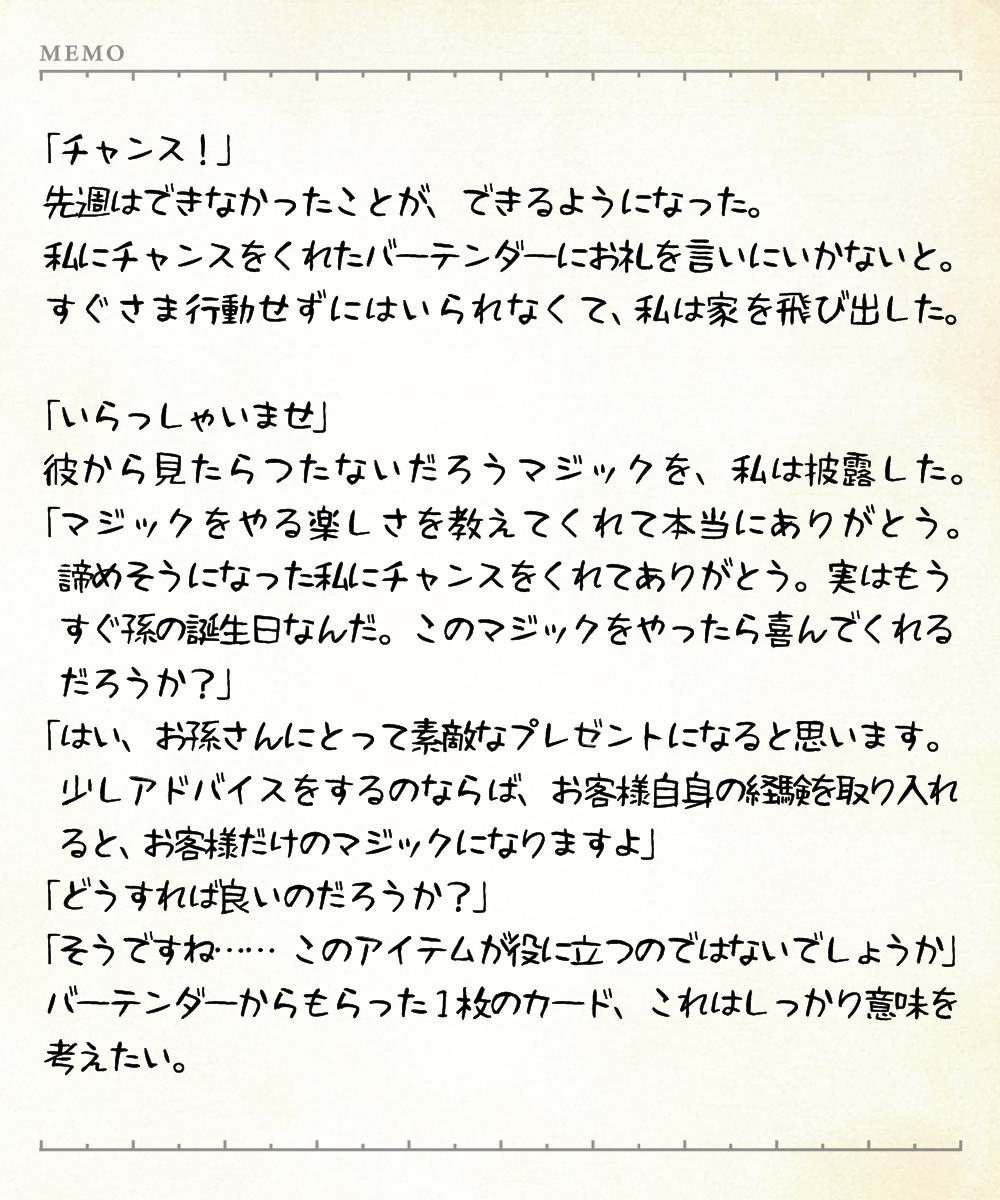 MEMO
「チャンス！」
先週はできなかったことが、できるようになった。
私にチャンスをくれたバーテンダーにお礼を言いにいかないと。
すぐさま行動せずにはいられなくて、私は家を飛び出した。
「いらっしゃいませ」
彼から見たらつたないだろうマジックを、私は披露した。
「マジックをやる楽しさを教えてくれて本当にありがとう。
諦めそうになった私にチャンスをくれてありがとう。実はもう
すぐ孫の誕生日なんだ。このマジックをやったら喜んでくれる
だろうか？」
「はい、お孫さんにとって素敵なプレゼントになると思います。
少しアドバイスをするのならば、お客様自身の経験を取り入れ
ると、お客様だけのマジックになりますよ」
「どうすれば良いのだろうか？」
「そうですね…… このアイテムが役に立つのではないでしょうか」
バーテンダーからもらった1枚のカード、これはしっかり意味を
考えたい。